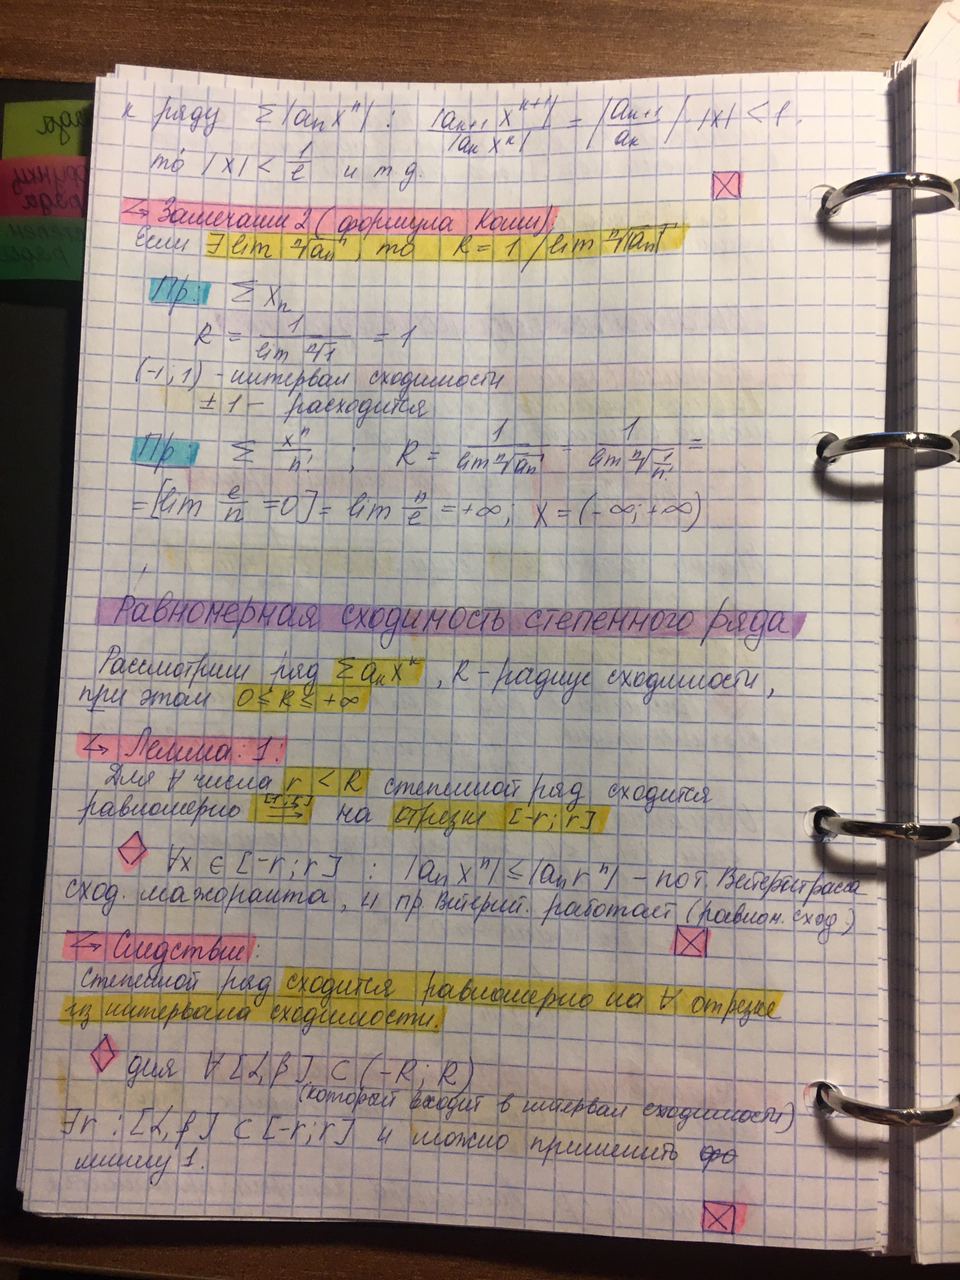 к ряду Σ|aₙxⁿ| : |aₙ₊₁ xⁿ⁺¹| / |aₙ xⁿ| = |aₙ₊₁ / aₙ| · |x| < 1.
то |x| < 1/ℓ и т д.
↳ Замечание 2 (формула Коши):
Если ∃ lim ⁿ√|aₙ|, то R = 1 / lim ⁿ√|aₙ|
Пр: Σ xₙ
R = 1 / lim ⁿ√1 = 1
(-1, 1) - интервал сходимости
± 1 - расходится
Пр: Σ xⁿ/n! ; R = 1 / lim ⁿ√aₙ = 1 / lim ⁿ√(1/n!) =
= [lim e/n = 0] = lim n/e = +∞; X = (-∞; +∞)
Равномерная сходимость степенного ряда
Рассмотрим ряд Σ aₙxⁿ, R - радиус сходимости,
при этом 0 ≤ R ≤ +∞
↳ Лемма: 1:
Для ∀ числа r < R степенной ряд сходится
равномерно ⇉ на отрезке [-r; r]
∀x ∈ [-r; r] : |aₙ xⁿ| ≤ |aₙ rⁿ| - по т. Вейерштрасса
сход. мажоранта, и пр. Вейерш. работает (равном. сход)
↳ Следствие:
Степенной ряд сходится равномерно на ∀ отрезке
из интервала сходимости.
для ∀ [α, β] ⊂ (-R; R)
(который входит в интервал сходимости)
∃r : [α, β] ⊂ [-r; r] и можно применить
лемму 1.